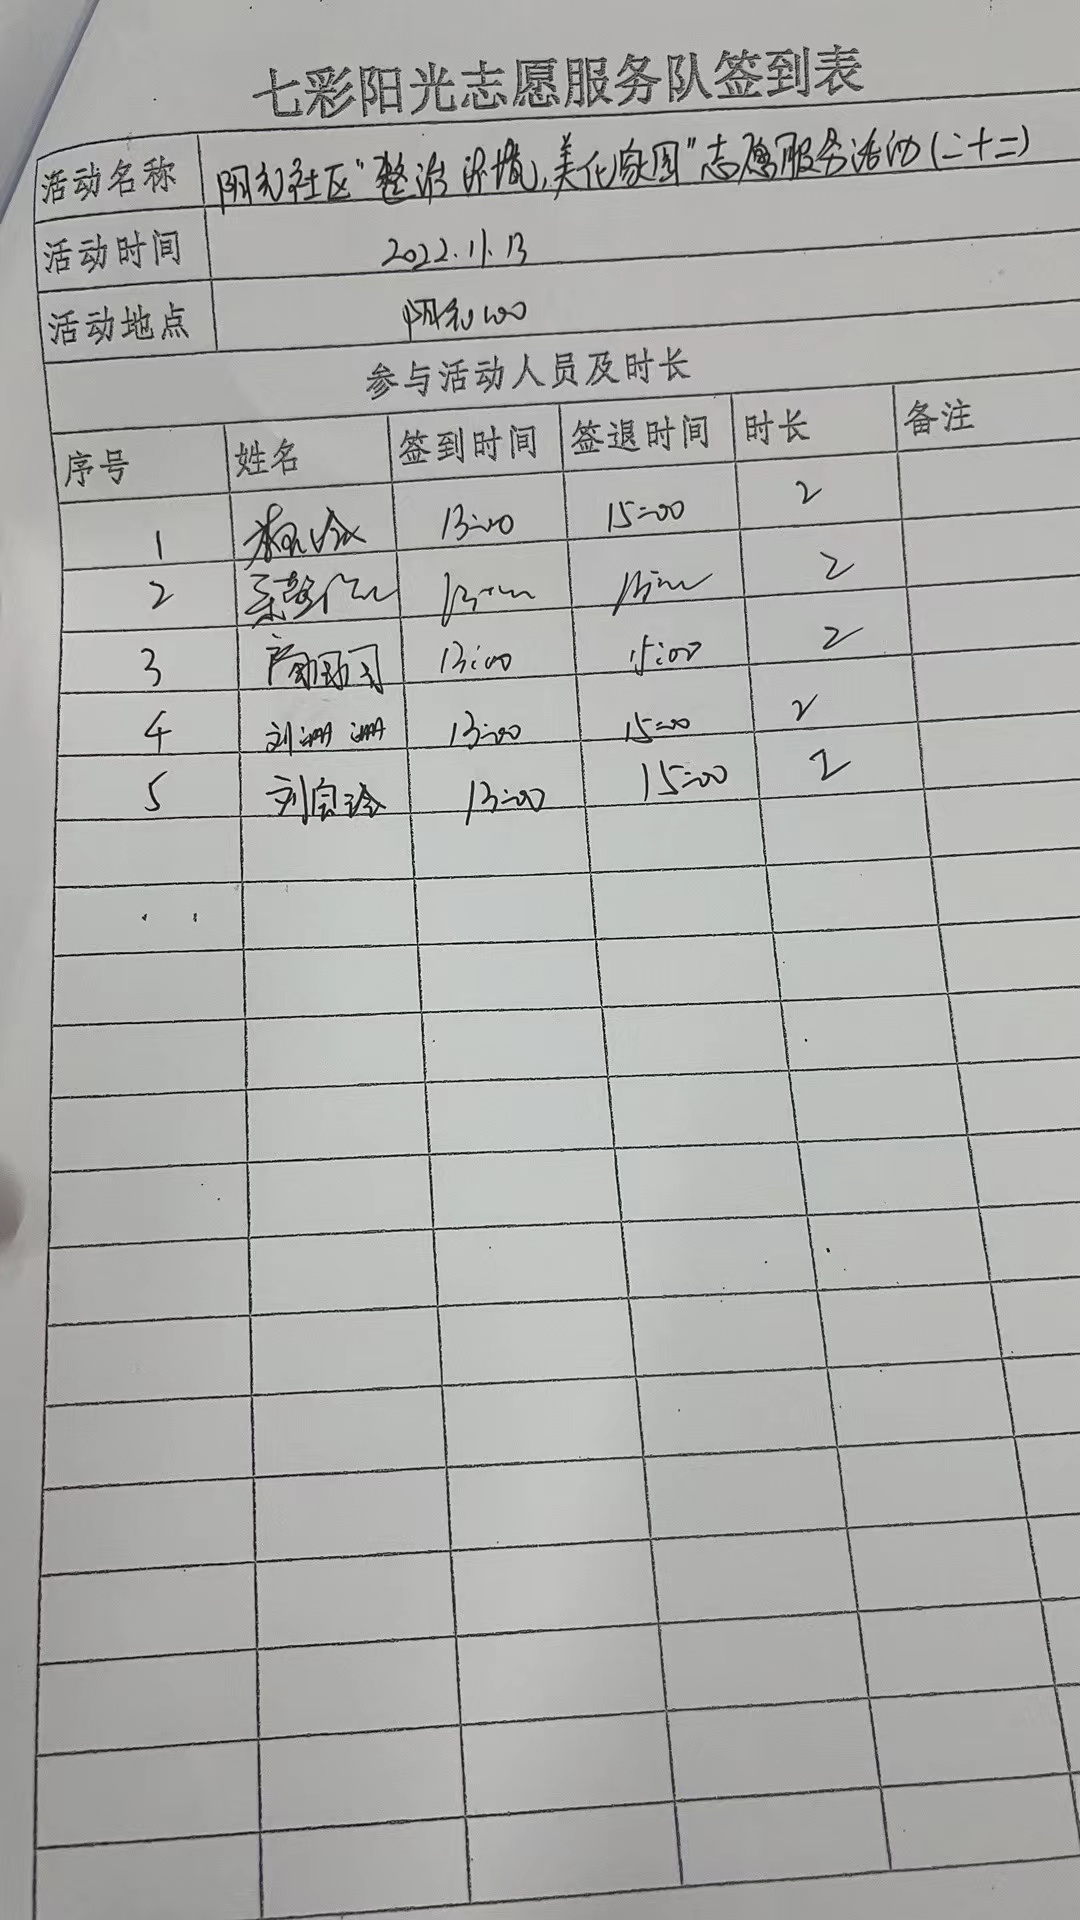 七彩阳光志愿服务队签到表
活动名称 阳光社区"整治环境,美化家园"志愿服务活动(二十二)
活动时间 2022.11.13
活动地点 阳光100
参与活动人员及时长
序号 姓名 签到时间 签退时间 时长 备注
1 13:00 15:00 2
2 2
3 13:00 15:00 2
4 刘洲洲 13:00 15:00 2
5 刘会玲 13:00 15:00 2